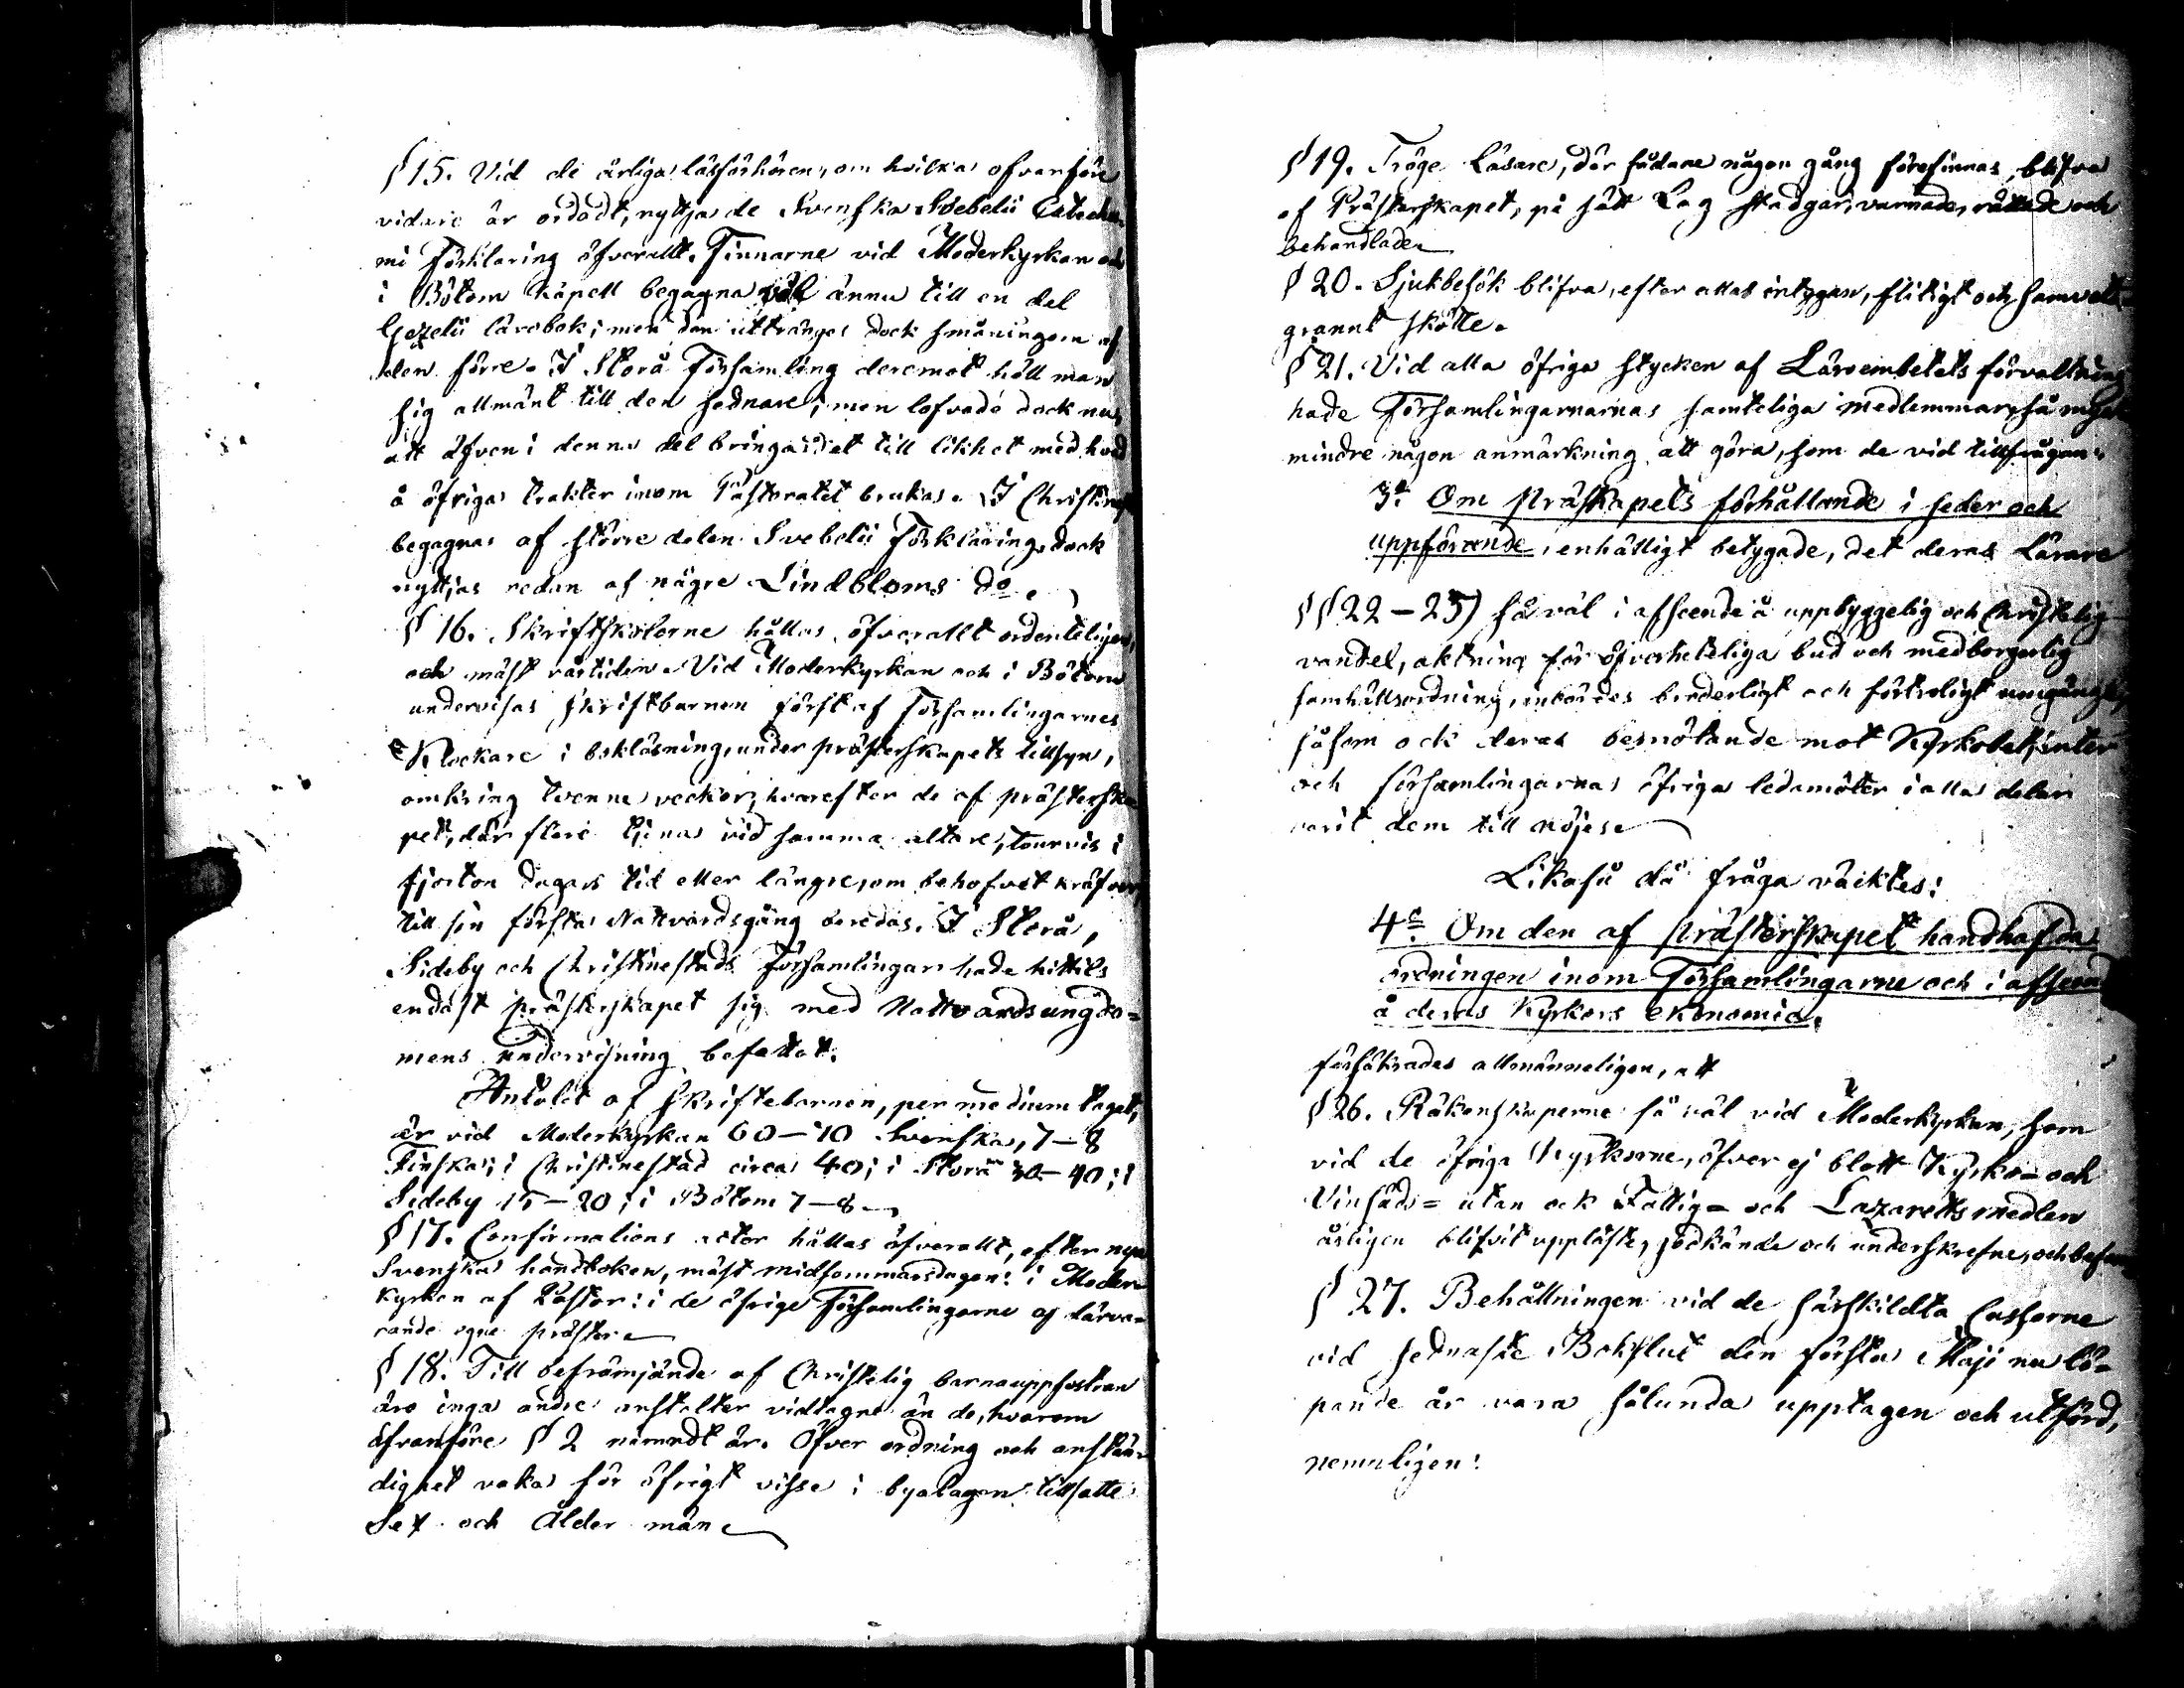 § 15. Vid de årliga läsförhören, om hvilka ofvanföre
vidare är ordadt, nyttja de Svenska Svebelii Catechis-
mi Förklaring öfverallt. Finnarne vid Moderkyrkan och
i Bötom Kapell begagna väl ännu till en del
Gezelii lärobok; men den utträngas dock småningom af
den förre. I Storå Församling deremot höll man
sig allmänt till den sednare; men lofvade dock nu,
att äfven i denna del bringa det till likhet med hvad
å öfriga trakter inom Pastoratet brukas. I Christinest
begagnas af större delen Svebelii Förklaring, dock
nyttjas redan af några Lindbloms do.
§ 16. Skriftskolorne hållas öfverallt ordenteligen,
och mäst vårtiden. Vid Moderkyrkan och i Bötom
undervisas skriftbarnen först af Församlingarnes
Klockare i bokläsning, under prästerskapets tillsyn,
omkring tvenne veckor, hvarefter de af prästerska-
pet, där flere tjena vid samma altare, tourvis i
fjorton dagars tid eller längre, om behofvet kräfver,
till sin första Nattvardsgång beredas. I Storå,
Sideby och Christinestads Församlingar hade hittils
endast prästerskapet sig med Nattvardsungdo-
mens undervisning befattat.
Antalet af skriftebarnen, per medium taget,
är vid Moderkyrkan 60–70 Svenska, 7–8
Finska; i Christinestad circa 40; i Storå 30–40; i
Sideby 15–20; i Bötom 7–8
§ 17. Confirmations acter hållas öfverallt, efter nya
Svenska handboken, mäst midsommarsdagen: i Moder-
kyrkan af Pastor: i de öfrige Församlingarne af därva-
rande egne präster
§ 18. Till befrämjande af Christelig barnauppfostran
äro inga andre anstalter vidtagne än de, hvarom
ofvanföre § 2 nämndt är. Öfver ordning och anstän-
dighet vaka för öfrigt visse i byalagen tillsatte
Sex och Ålder män
§ 19. Tröge Läsare, där sådane någon gång förefinnas, blifva
af Prästerskapet, på sätt Lag stadgar, varnade, rättade och
behandlade
§ 20. Sjukbesök blifva, efter allas intygan, flitigt och samvets-
grannt skötte.
§ 21. Vid alla öfriga stycken af Läroembetets förvaltning
hade Församlingarnas samteliga medlemmar så mycket
mindre någon anmärkning att göra, som de vid tillfrågan:
3o. Om präskapets förhållande i seder och
uppförande, enhälligt betygade, det deras Lärare
§§ 22–25) så väl i afseende å uppbyggelig och Christelig
vandel, aktning för öfverheteliga bud och medborgerlig
samhällsordning, inbördes broderligt och förtroligt umgänge,
såsom ock deras bemötande mot Kyrkobetjenter
och församlingarnas öfriga ledamöter i alla delar
varit dem till nöjes
Likaså då fråga väcktes:
4o. Om den af prästerskapet handhafda
ordningen inom Församlingarne och i afseende
å deras Kyrkors ekonomie,
försäkrades allmänneligen, att
§ 26. Räkenskaperne så väl vid Moderkyrkan, som
vid de öfriga Kyrkorne, öfver ej blott Kyrko- och
Vinsäds- utan ock Fattig- och Lazaretts medlen
årligen blifvit uppläste, godkände och underskrefne, och befans
§ 27. Behållningen vid de särskildta Cassorne
vid sednaste Bokslut den första Maji nu lö-
pande år vara sålunda upptagen och utförd,
nemligen: